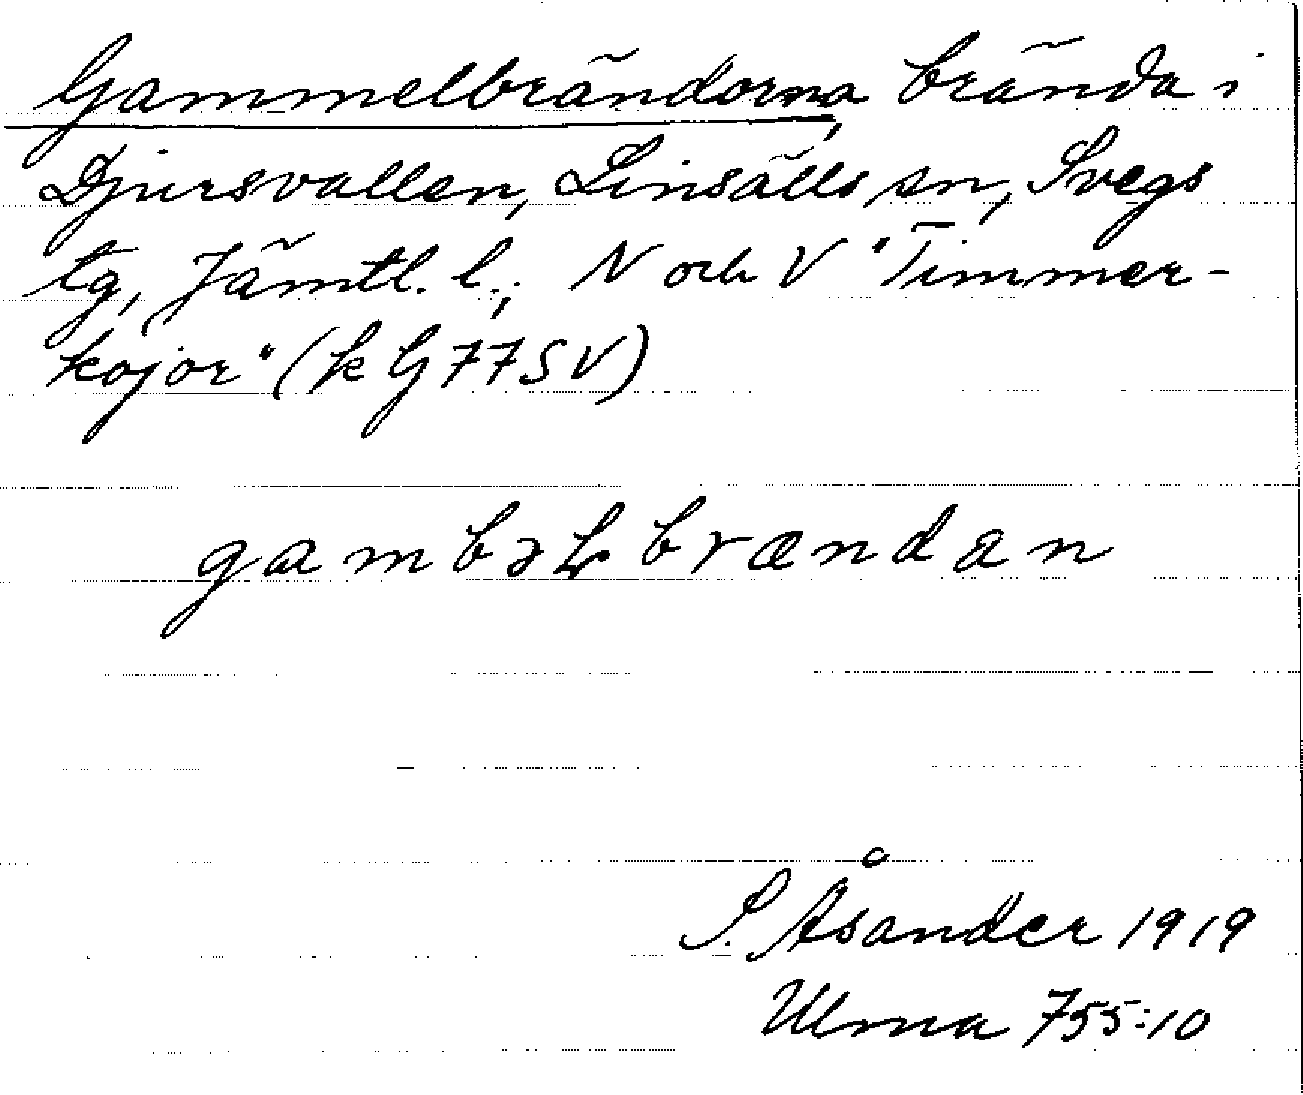 Gammelbrändorna, brända i
Djursvallen, Linsälls sn, Svegs
tg, Jämtl. l.; N och V "Timmer-
kojor" (k G77SV)
gambəɫbrændan
S. Åsander 1919
Ulma 755:10